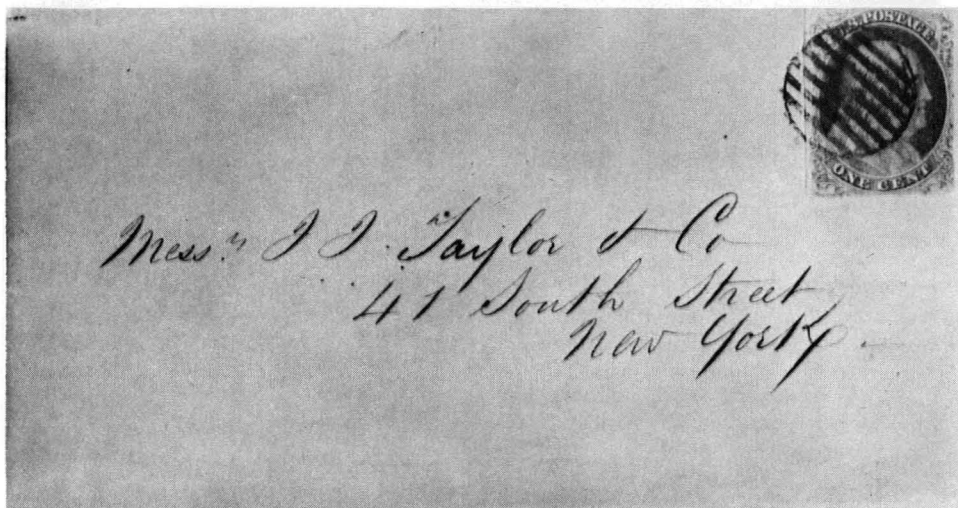 U.S. POSTAGE
ONE CENT
Messrs J J. Taylor & Co
41 South Street
New York.